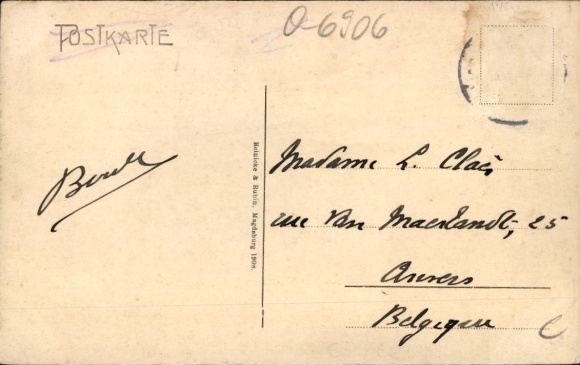 POSTKARTE
0-6906
Madame L. Claes
rue Van Maerlandt, 25
Anvers
Belgique
Reinicke & Rubin, Magdeburg 1908.